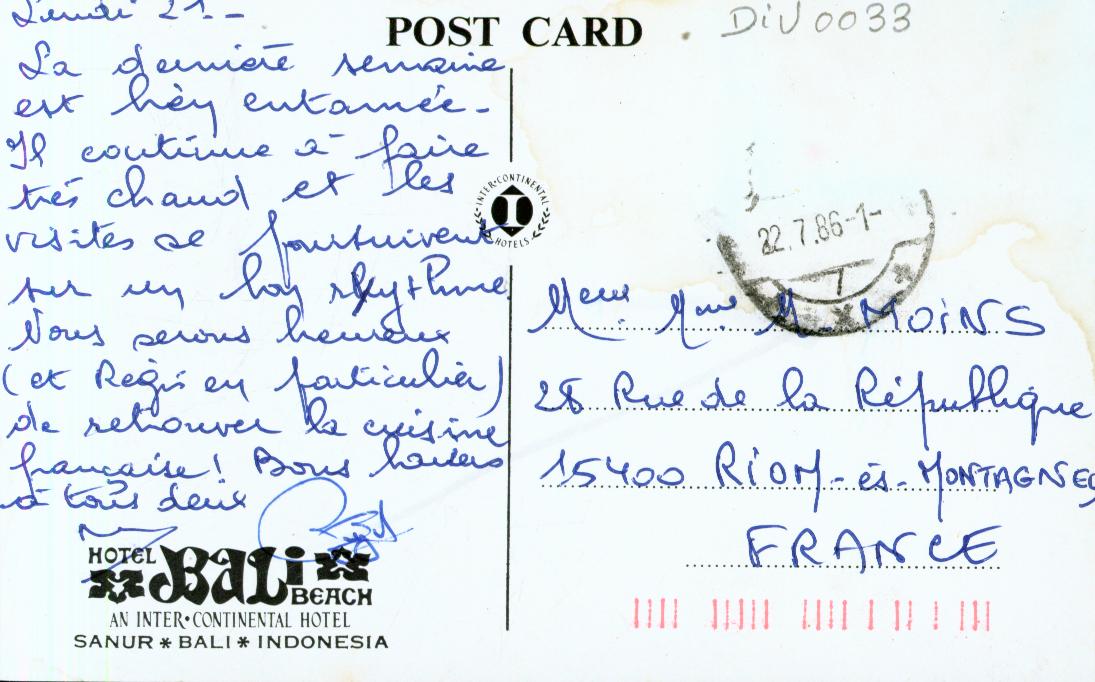 Lundi 21 -
La dernière semaine
est bien entamée -
Il continue à faire
très chaud et les
visites se poursuivent
sur un bon rhythme.
Nous serons heureux
(et Régis en particulier)
de retrouver la cuisine
française! Bons baisers
à tous deux
HOTEL BALI BEACH
AN INTER•CONTINENTAL HOTEL
SANUR * BALI * INDONESIA
POST CARD
INTER•CONTINENTAL HOTELS
I
DiV0033
22.7.86-1-
7
Meur. Mme M. MOINS
28 Rue de la République
15400 RIOM-ès-MONTAGNES
FRANCE